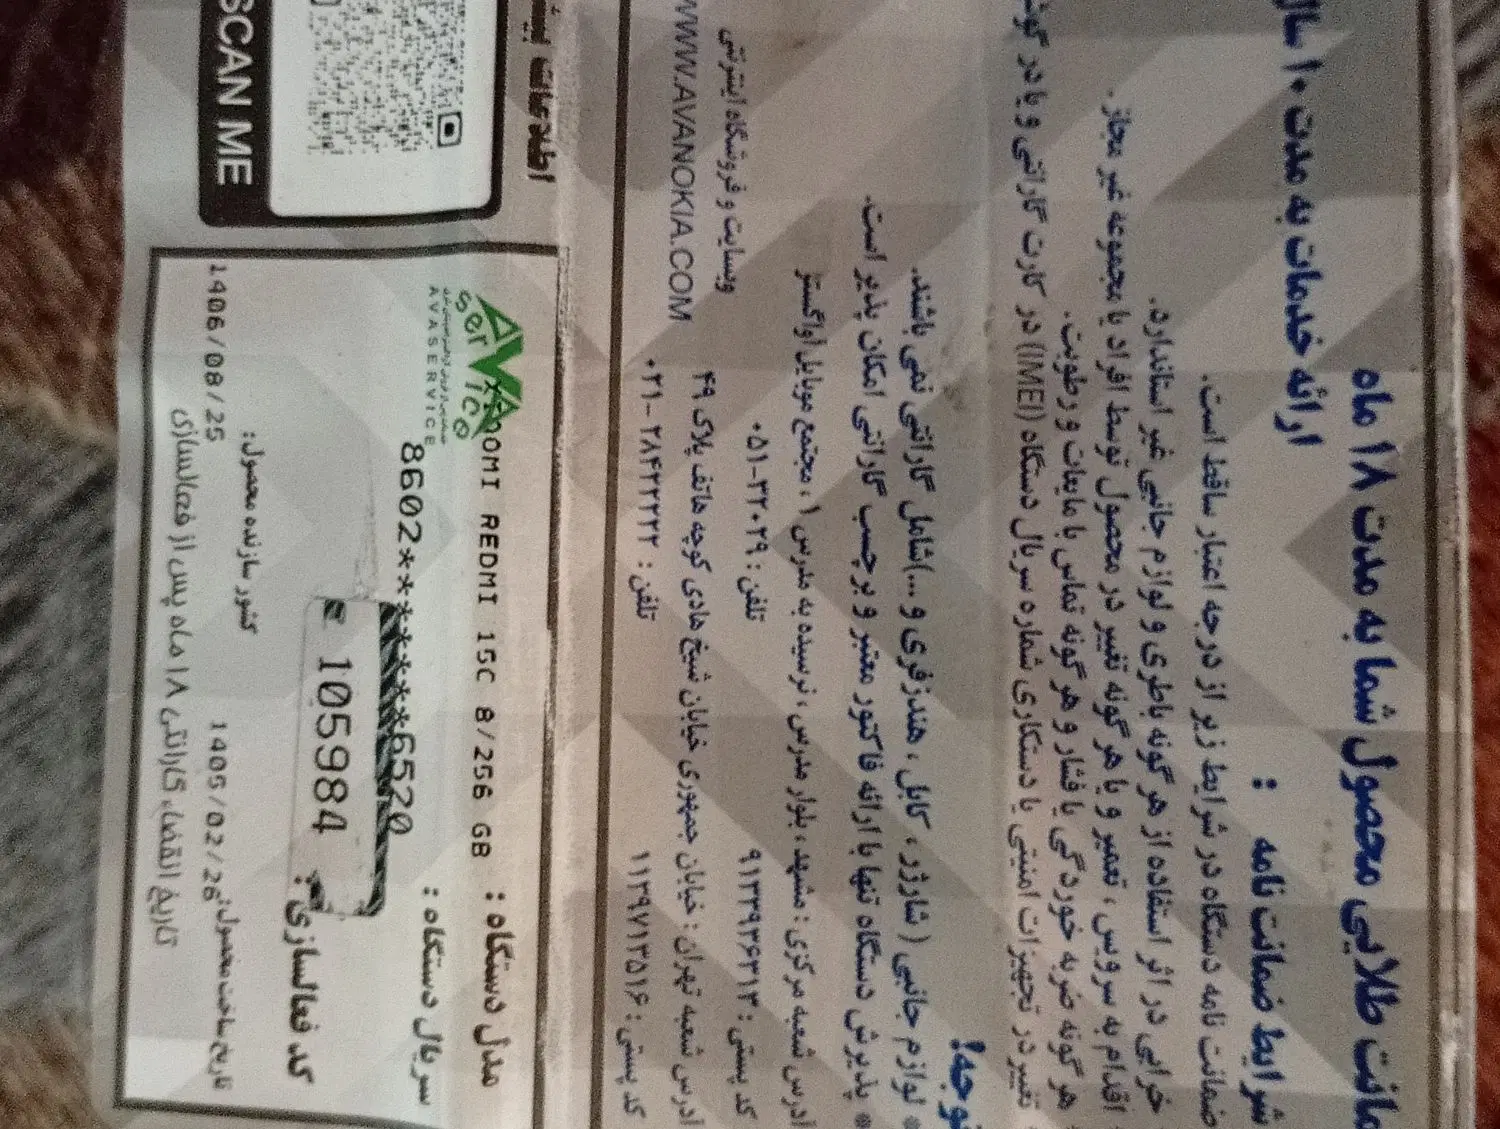 ضمانت طلایی محصول شما به مدت ۱۸ ماه
ارائه خدمات به مدت ۱۰ سال
شرایط ضمانت نامه :
ضمانت نامه دستگاه در شرایط زیر از درجه اعتبار ساقط است.
خرابی در اثر استفاده از هر گونه باطری و لوازم جانبی غیر استاندارد.
اقدام به سرویس ، تعمیر و یا هر گونه تغییر در محصول توسط افراد یا مجموعه غیر مجاز .
هر گونه ضربه خوردگی یا فشار و هر گونه تماس با مایعات و رطوبت.
تغییر در تجهیزات امنیتی یا دستکاری شماره سریال دستگاه (IMEI) در کارت گارانتی و یا در
توجه!
* لوازم جانبی ( شارژر ، کابل ، هندزفری و ...)شامل گارانتی نمی باشند.
* پذیرش دستگاه تنها با ارائه فاکتور معتبر و برچسب گارانتی امکان پذیر است.
آدرس شعبه مرکزی : مشهد ، بلوار مدرس ، نرسیده به مدرس ۱ ، مجتمع موبایل آواگستر
کد پستی : ۹۱۳۳۹۳۶۳۱۳ تلفن : ۳۲۰۲۹-۰۵۱ وبسایت و فروشگاه اینترنتی
آدرس شعبه تهران : خیابان جمهوری خیابان شیخ هادی کوچه هاتف پلاک ۴۹ WWW.AVANOKIA.COM
کد پستی : ۱۱۳۹۷۱۳۵۱۶ تلفن : ۲۸۴۲۲۲۲۲ -۰۲۱
AVA
service
AVASERVICE
مدل دستگاه : XIAOMI REDMI 15C 8/256 GB
سریال دستگاه : 8602*******6520
کد فعالسازی : 105984
کشور سازنده محصول:
تاریخ ساخت محصول: 1405/02/26 1406/08/25
تاریخ انقضاء گارانتی ۱۸ ماه پس از فعالسازی
SCAN ME